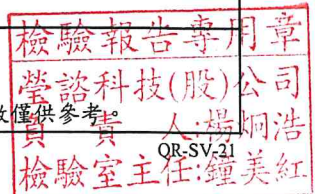 檢驗報告專用章
瑩諮科技(股)公司
負責人:楊炯浩
檢驗室主任:鐘美紅
僅供參考。
QR-SV-21